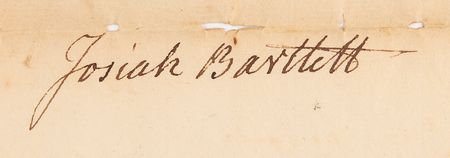 Josiah Bartlett